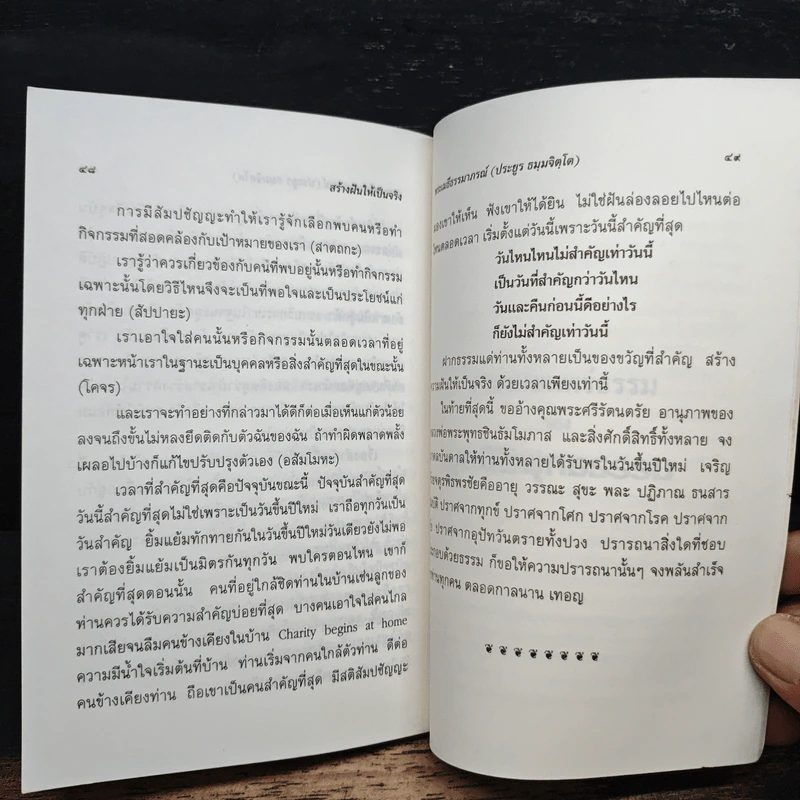 ๔๘
สร้างฝันให้เป็นจริง
การมีสัมปชัญญะทำให้เรารู้จักเลือกพบคนหรือทำ
กิจกรรมที่สอดคล้องกับเป้าหมายของเรา (สาตถกะ)
เรารู้ว่าควรเกี่ยวข้องกับคนที่พบอยู่นั้นหรือทำกิจกรรม
เฉพาะนั้นโดยวิธีไหนจึงจะเป็นที่พอใจและเป็นประโยชน์แก่
ทุกฝ่าย (สัปปายะ)
เราเอาใจใส่คนนั้นหรือกิจกรรมนั้นตลอดเวลาที่อยู่
เฉพาะหน้าเราในฐานะเป็นบุคคลหรือสิ่งสำคัญที่สุดในขณะนั้น
(โคจร)
และเราจะทำอย่างที่กล่าวมาได้ดีก็ต่อเมื่อเห็นแก่ตัวน้อย
ลงจนถึงขั้นไม่หลงยึดติดกับตัวฉันของฉัน ถ้าทำผิดพลาดพลั้ง
เผลอไปบ้างก็แก้ไขปรับปรุงตัวเอง (อสัมโมหะ)
เวลาที่สำคัญที่สุดคือปัจจุบันขณะนี้ ปัจจุบันสำคัญที่สุด
วันนี้สำคัญที่สุดไม่ใช่เพราะเป็นวันขึ้นปีใหม่ เราถือทุกวันเป็น
วันสำคัญ ยิ้มแย้มทักทายกันในวันขึ้นปีใหม่วันเดียวยังไม่พอ
เราต้องยิ้มแย้มเป็นมิตรกันทุกวัน พบใครตอนไหน เขาก็
สำคัญที่สุดตอนนั้น คนที่อยู่ใกล้ชิดท่านในบ้านเช่นลูกของ
ท่านควรได้รับความสำคัญบ่อยที่สุด บางคนเอาใจใส่คนไกล
มากเสียจนลืมคนข้างเคียงในบ้าน Charity begins at home
ความมีน้ำใจเริ่มต้นที่บ้าน ท่านเริ่มจากคนใกล้ตัวท่าน ดีต่อ
คนข้างเคียงท่าน ถือเขาเป็นคนสำคัญที่สุด มีสติสัมปชัญญะ
(ประยูร ธมฺมจิตฺโต)
๔๙
เขาให้เห็น ฟังเขาให้ได้ยิน ไม่ใช่ฝันล่องลอยไปไหนต่อ
ไหนตลอดเวลา เริ่มตั้งแต่วันนี้เพราะวันนี้สำคัญที่สุด
วันไหนไหนไม่สำคัญเท่าวันนี้
เป็นวันที่สำคัญกว่าวันไหน
วันและคืนก่อนนี้ดีอย่างไร
ก็ยังไม่สำคัญเท่าวันนี้
ฝากธรรมแด่ท่านทั้งหลายเป็นของขวัญที่สำคัญ สร้าง
ความฝันให้เป็นจริง ด้วยเวลาเพียงเท่านี้
ในท้ายที่สุดนี้ ขออ้างคุณพระศรีรัตนตรัย อานุภาพของ
พระพุทธชินธัมโมภาส และสิ่งศักดิ์สิทธิ์ทั้งหลาย จง
บันดาลให้ท่านทั้งหลายได้รับพรในวันขึ้นปีใหม่ เจริญ
จตุรพิธพรชัยคืออายุ วรรณะ สุขะ พละ ปฏิภาณ ธนสาร
ปราศจากทุกข์ ปราศจากโศก ปราศจากโรค ปราศจาก
ปราศจากอุปัทวันตรายทั้งปวง ปรารถนาสิ่งใดที่ชอบ
ประกอบด้วยธรรม ก็ขอให้ความปรารถนานั้นๆ จงพลันสำเร็จ
ทุกคน ตลอดกาลนาน เทอญ